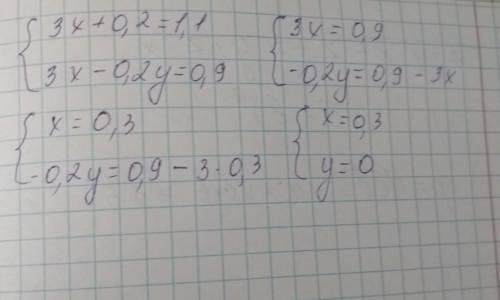 { 3x+0,2=1,1
3x-0,2y=0,9
{ 3x=0,9
-0,2y=0,9-3x
{ x=0,3
-0,2y=0,9-3·0,3
{ x=0,3
y=0